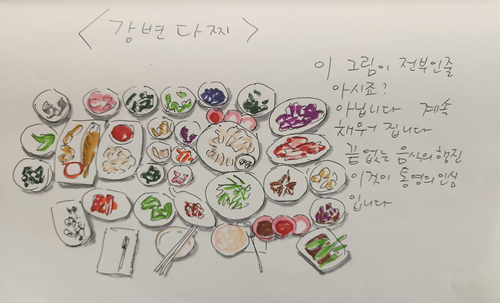 <강변다찌>
이 그림이 전부인줄
아시죠?
아닙니다 계속
채워 집니다
끝없는 음식의 행진
이것이 통영의 인심
입니다